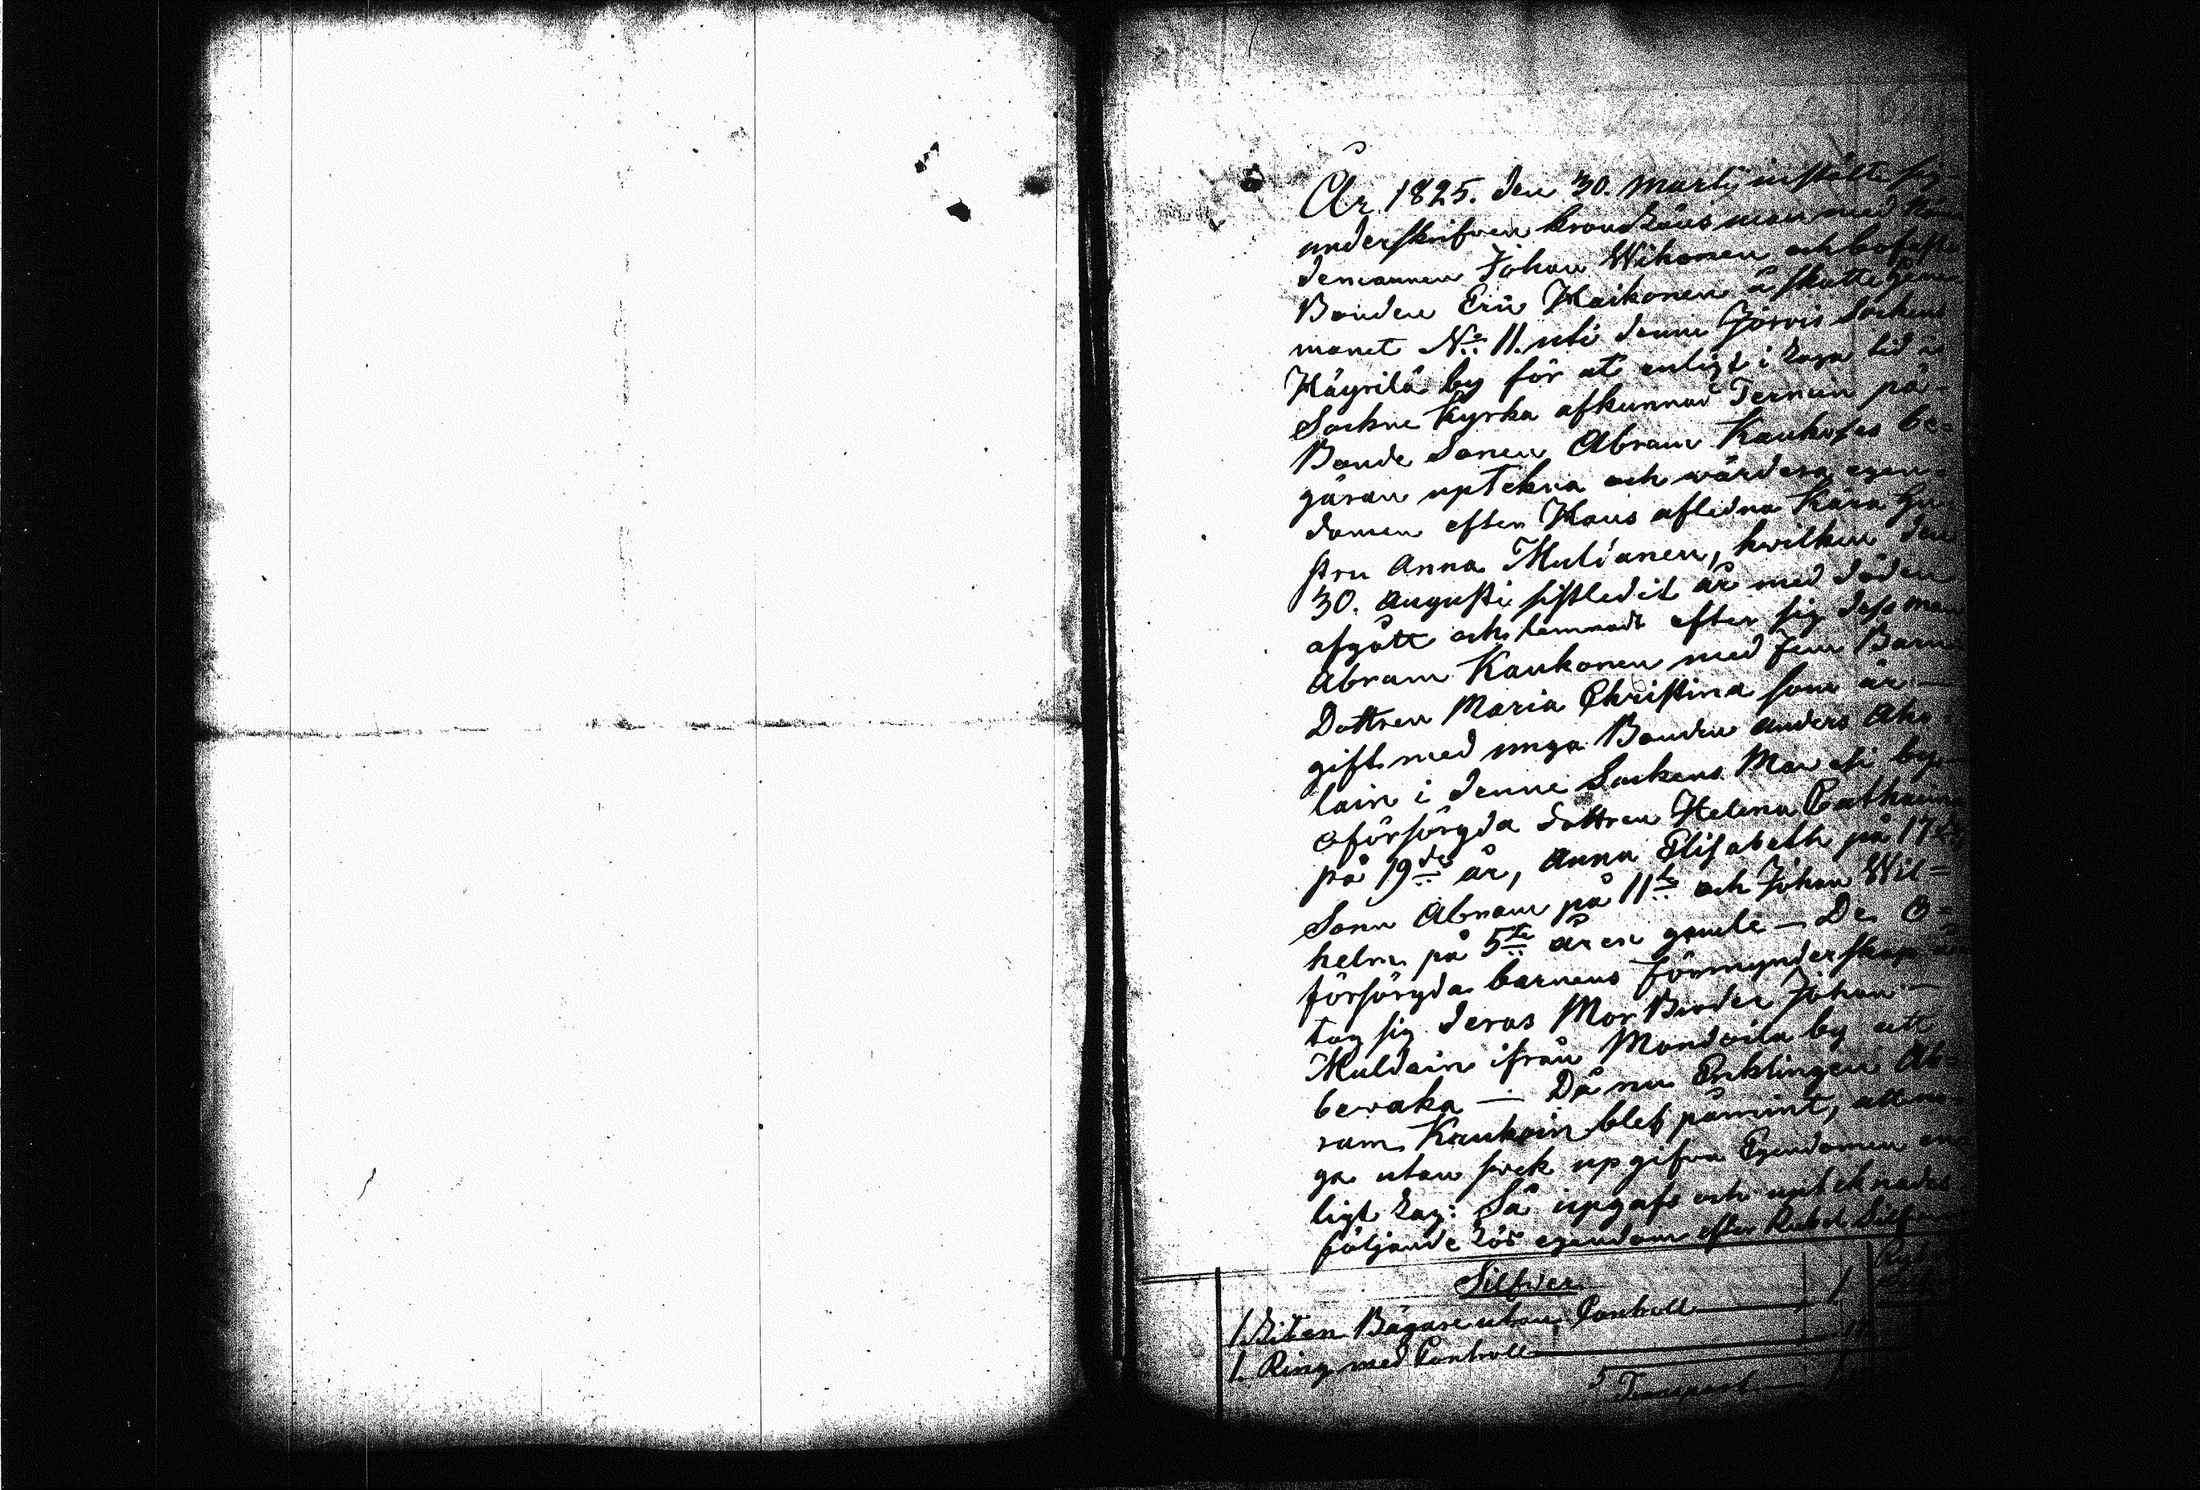 År 1825. den 30. Martij instälte sig
underskrifven kronolänsman med Nämn
demannen Johan Wihonen och bofaste
Bonden Eric Haikonen å skatte Hem
manet No 11. uti denne Jorois Sockens
Häyrilä by för at enligt i laga tid i
Sockne Kyrka afkunnad Termin på
Bonde Sonen Abram Kaukoses be=
gäran uptekna och värdera egen=
domen efter Hans aflidna Kära Hu=
stru Anna Mulianen, hvilken den
30. Augusti sistledit år med döden
afgått och lemnadt efter sig dess man
Abram Kaukonen med fem Barn
Dottren Maria Christina som är —
gift med unga Bonden Anders Aho=
lain i denne Sockens Mavesi by —
oförsörgda dottren Helena Catharina
på 19de år, Anna Elisabeth på 17de,
Sonn Abram på 11te och Johan Wil=
helm på 5te åren gamle — De O=
försörgda barnens förmynderskap
tog sig deras Mor Broder Johan —
Muldain ifrån Mondoila by att
bevaka — Då nu Enklingen Ab=
ram Kaukoin blef påmint, att
ga utan svek upgifva Egendomen en=
ligt Lag: Så upgafs och uptecknades
följande Lös egendom efter Rubel Silfver
Silfver
1. Liten Bägare utan Controll — 1
1. Ring med Controll —
Transport —